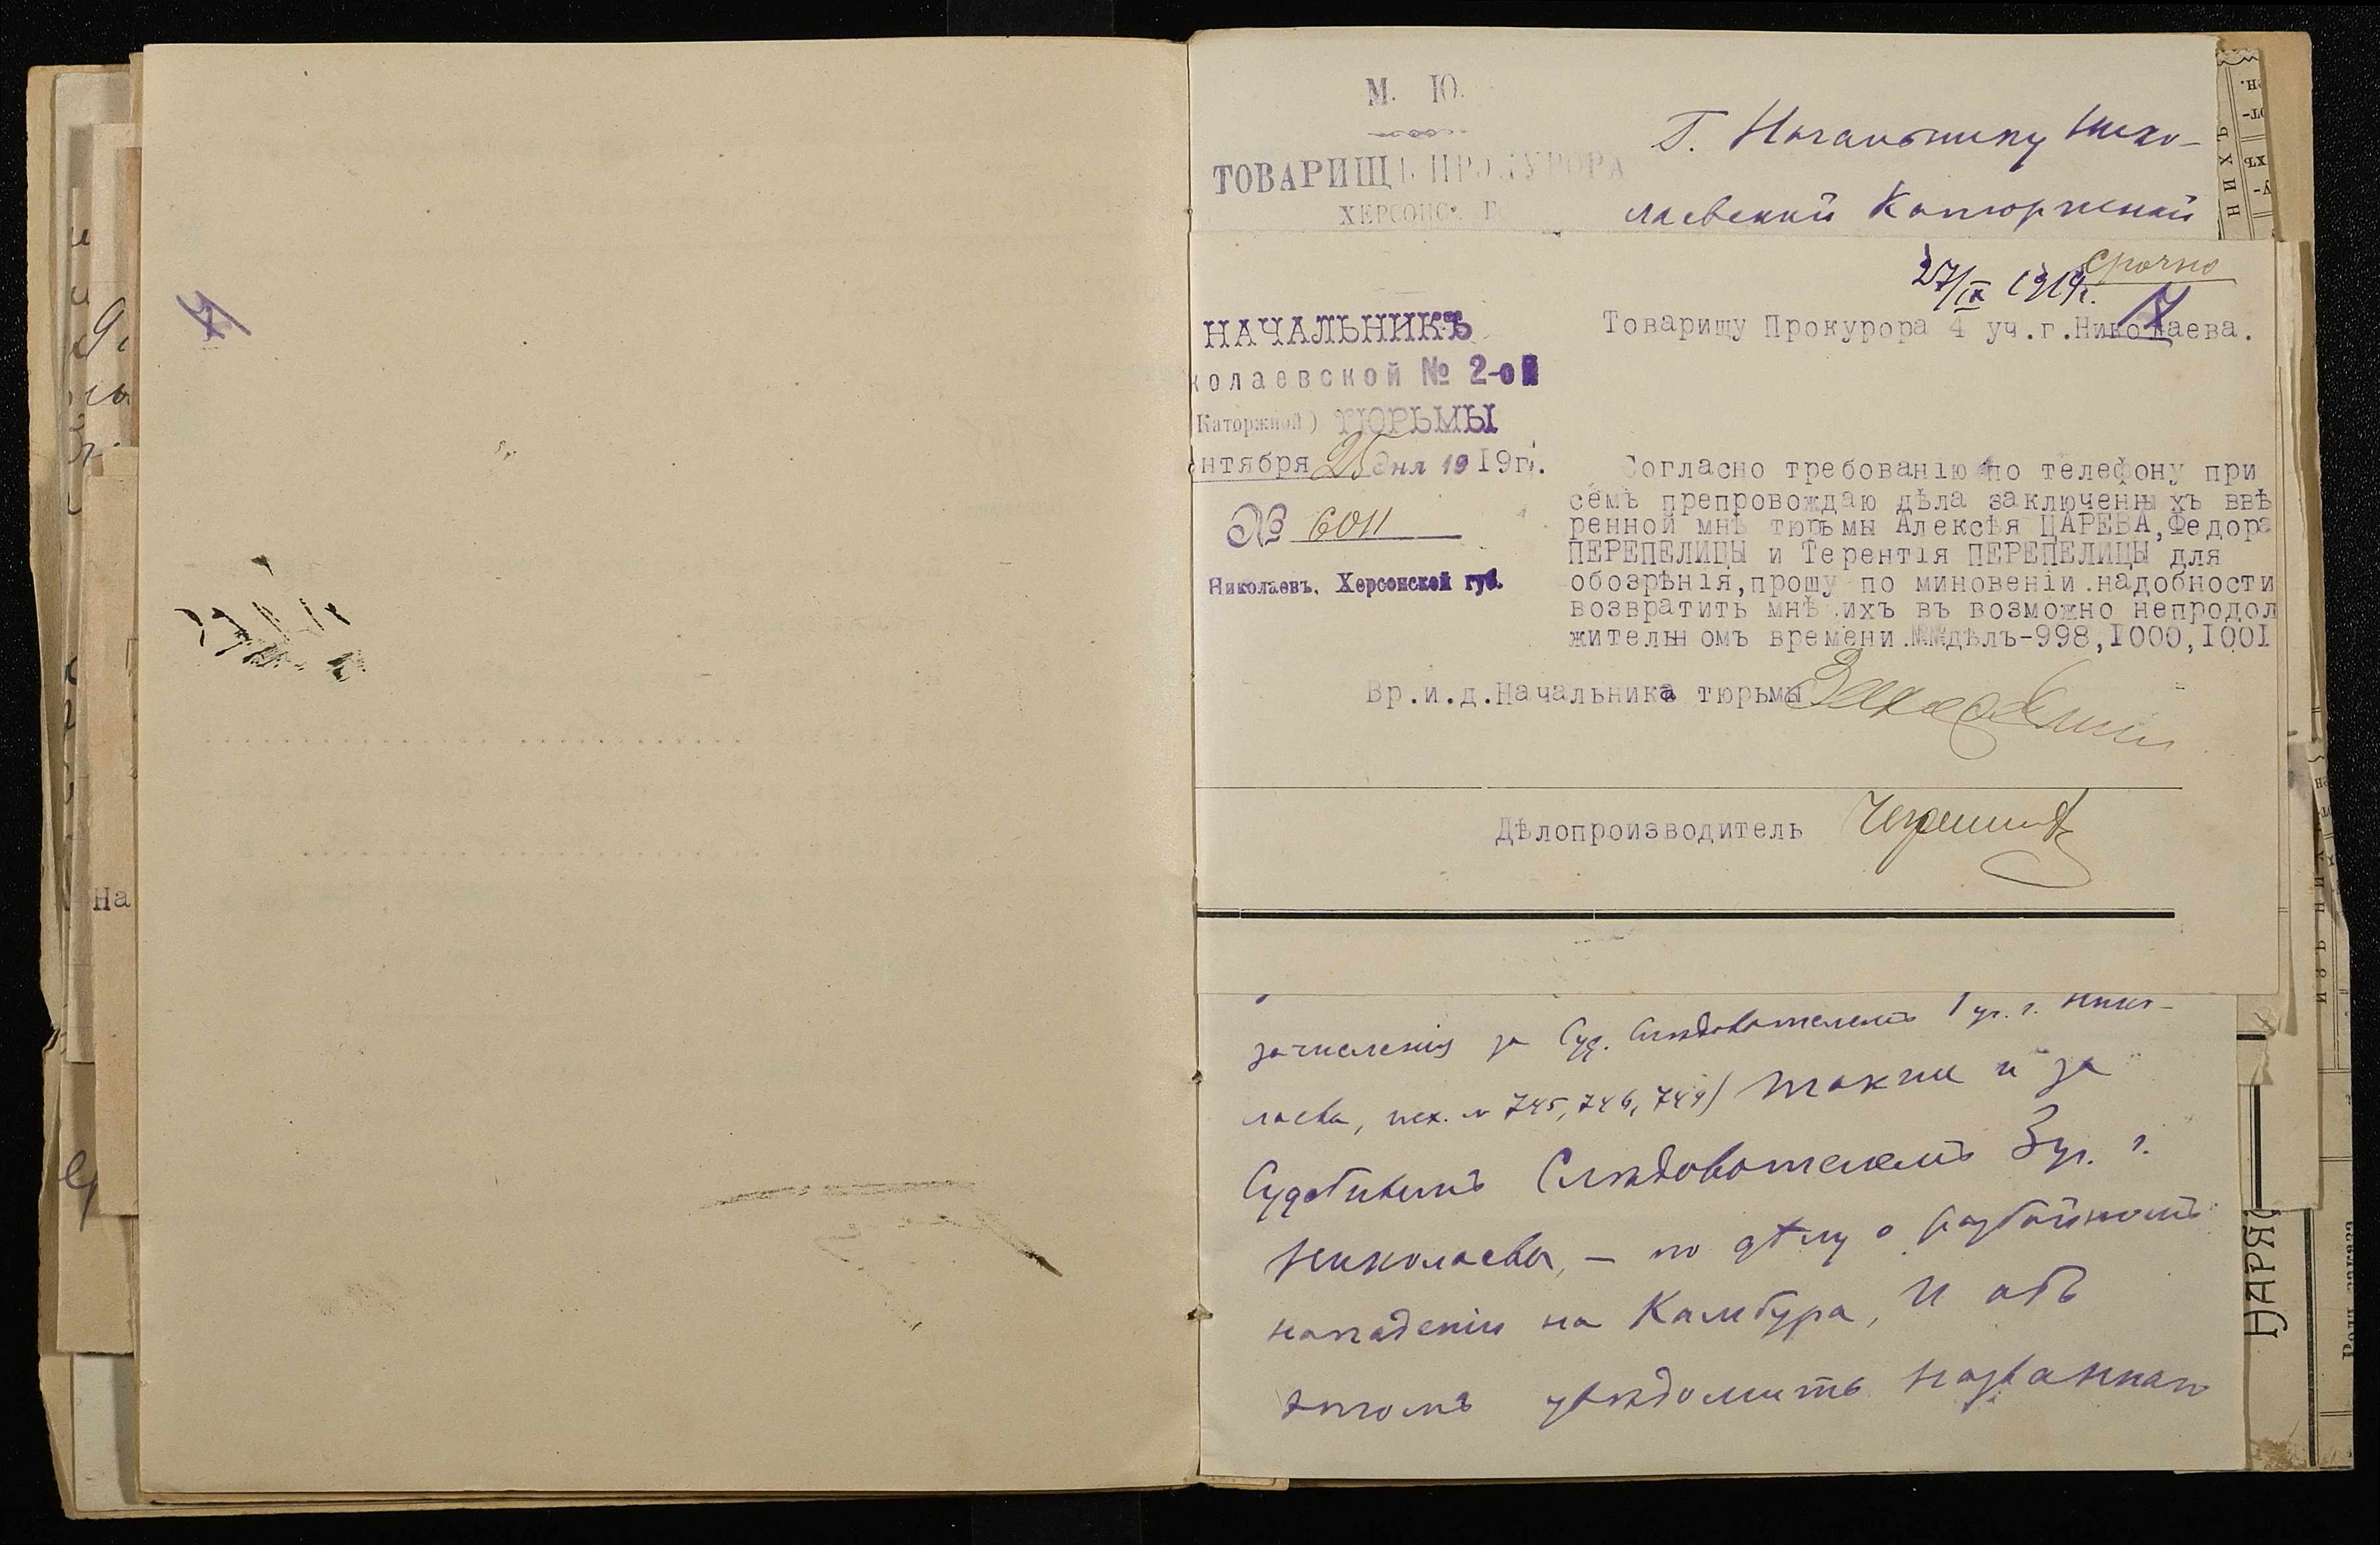 М. Ю.
ТОВАРИЩЪ ПРОКУРОРА
ХЕРСОНС
Г. Начальнику Нико-
лаевской Каторжной
срочно
27/IX 1919г.
НАЧАЛЬНИКЪ
колаевской № 2-ой
Каторжной) ТЮРЬМЫ
нтября 25 дня 19 19г.
№ 6011
Николаевъ, Херсонской губ.
Товарищу Прокурора 4 уч.г.Николаева.
Согласно требованію по телефону при
семъ препровождаю дѣла заключенны хъ ввѣ
ренной мнѣ тюрьмы Алексѣя ЦАРЕВА,Федора
ПЕРЕПЕЛИЦЫ и Терентія ПЕРЕПЕЛИЦЫ для
обозрѣнія,прошу по миновеніи надобности
возвратить мнѣ ихъ въ возможно непродол
жительн омъ времени.№№дѣлъ-998,1000,1001
Вр.и.д.Начальника тюрьмы
Дѣлопроизводитель
зачисленія за Суд. Слѣдователемъ 1 уч. г. Нико-
лаева, исх. № 745, 746, 749) также и за
Судебнымъ Слѣдователемъ 3 уч. г.
Николаева, – по дѣлу о разбойномъ
нападеніи на Камбура, и объ
этомъ увѣдомить названнаго
На
НАРЯ